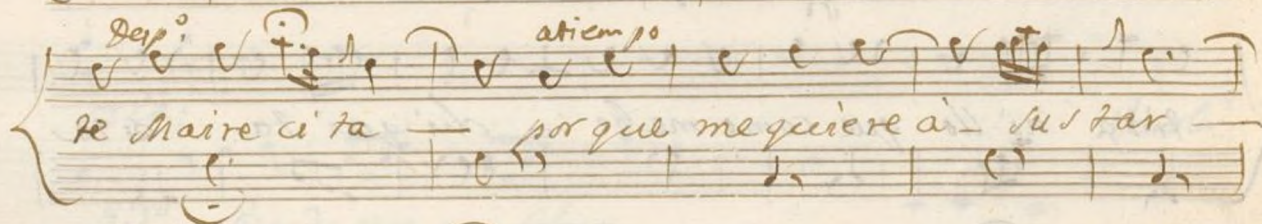 Desp.º atiempo
te Maire cita — por que me quiere a - sustar —